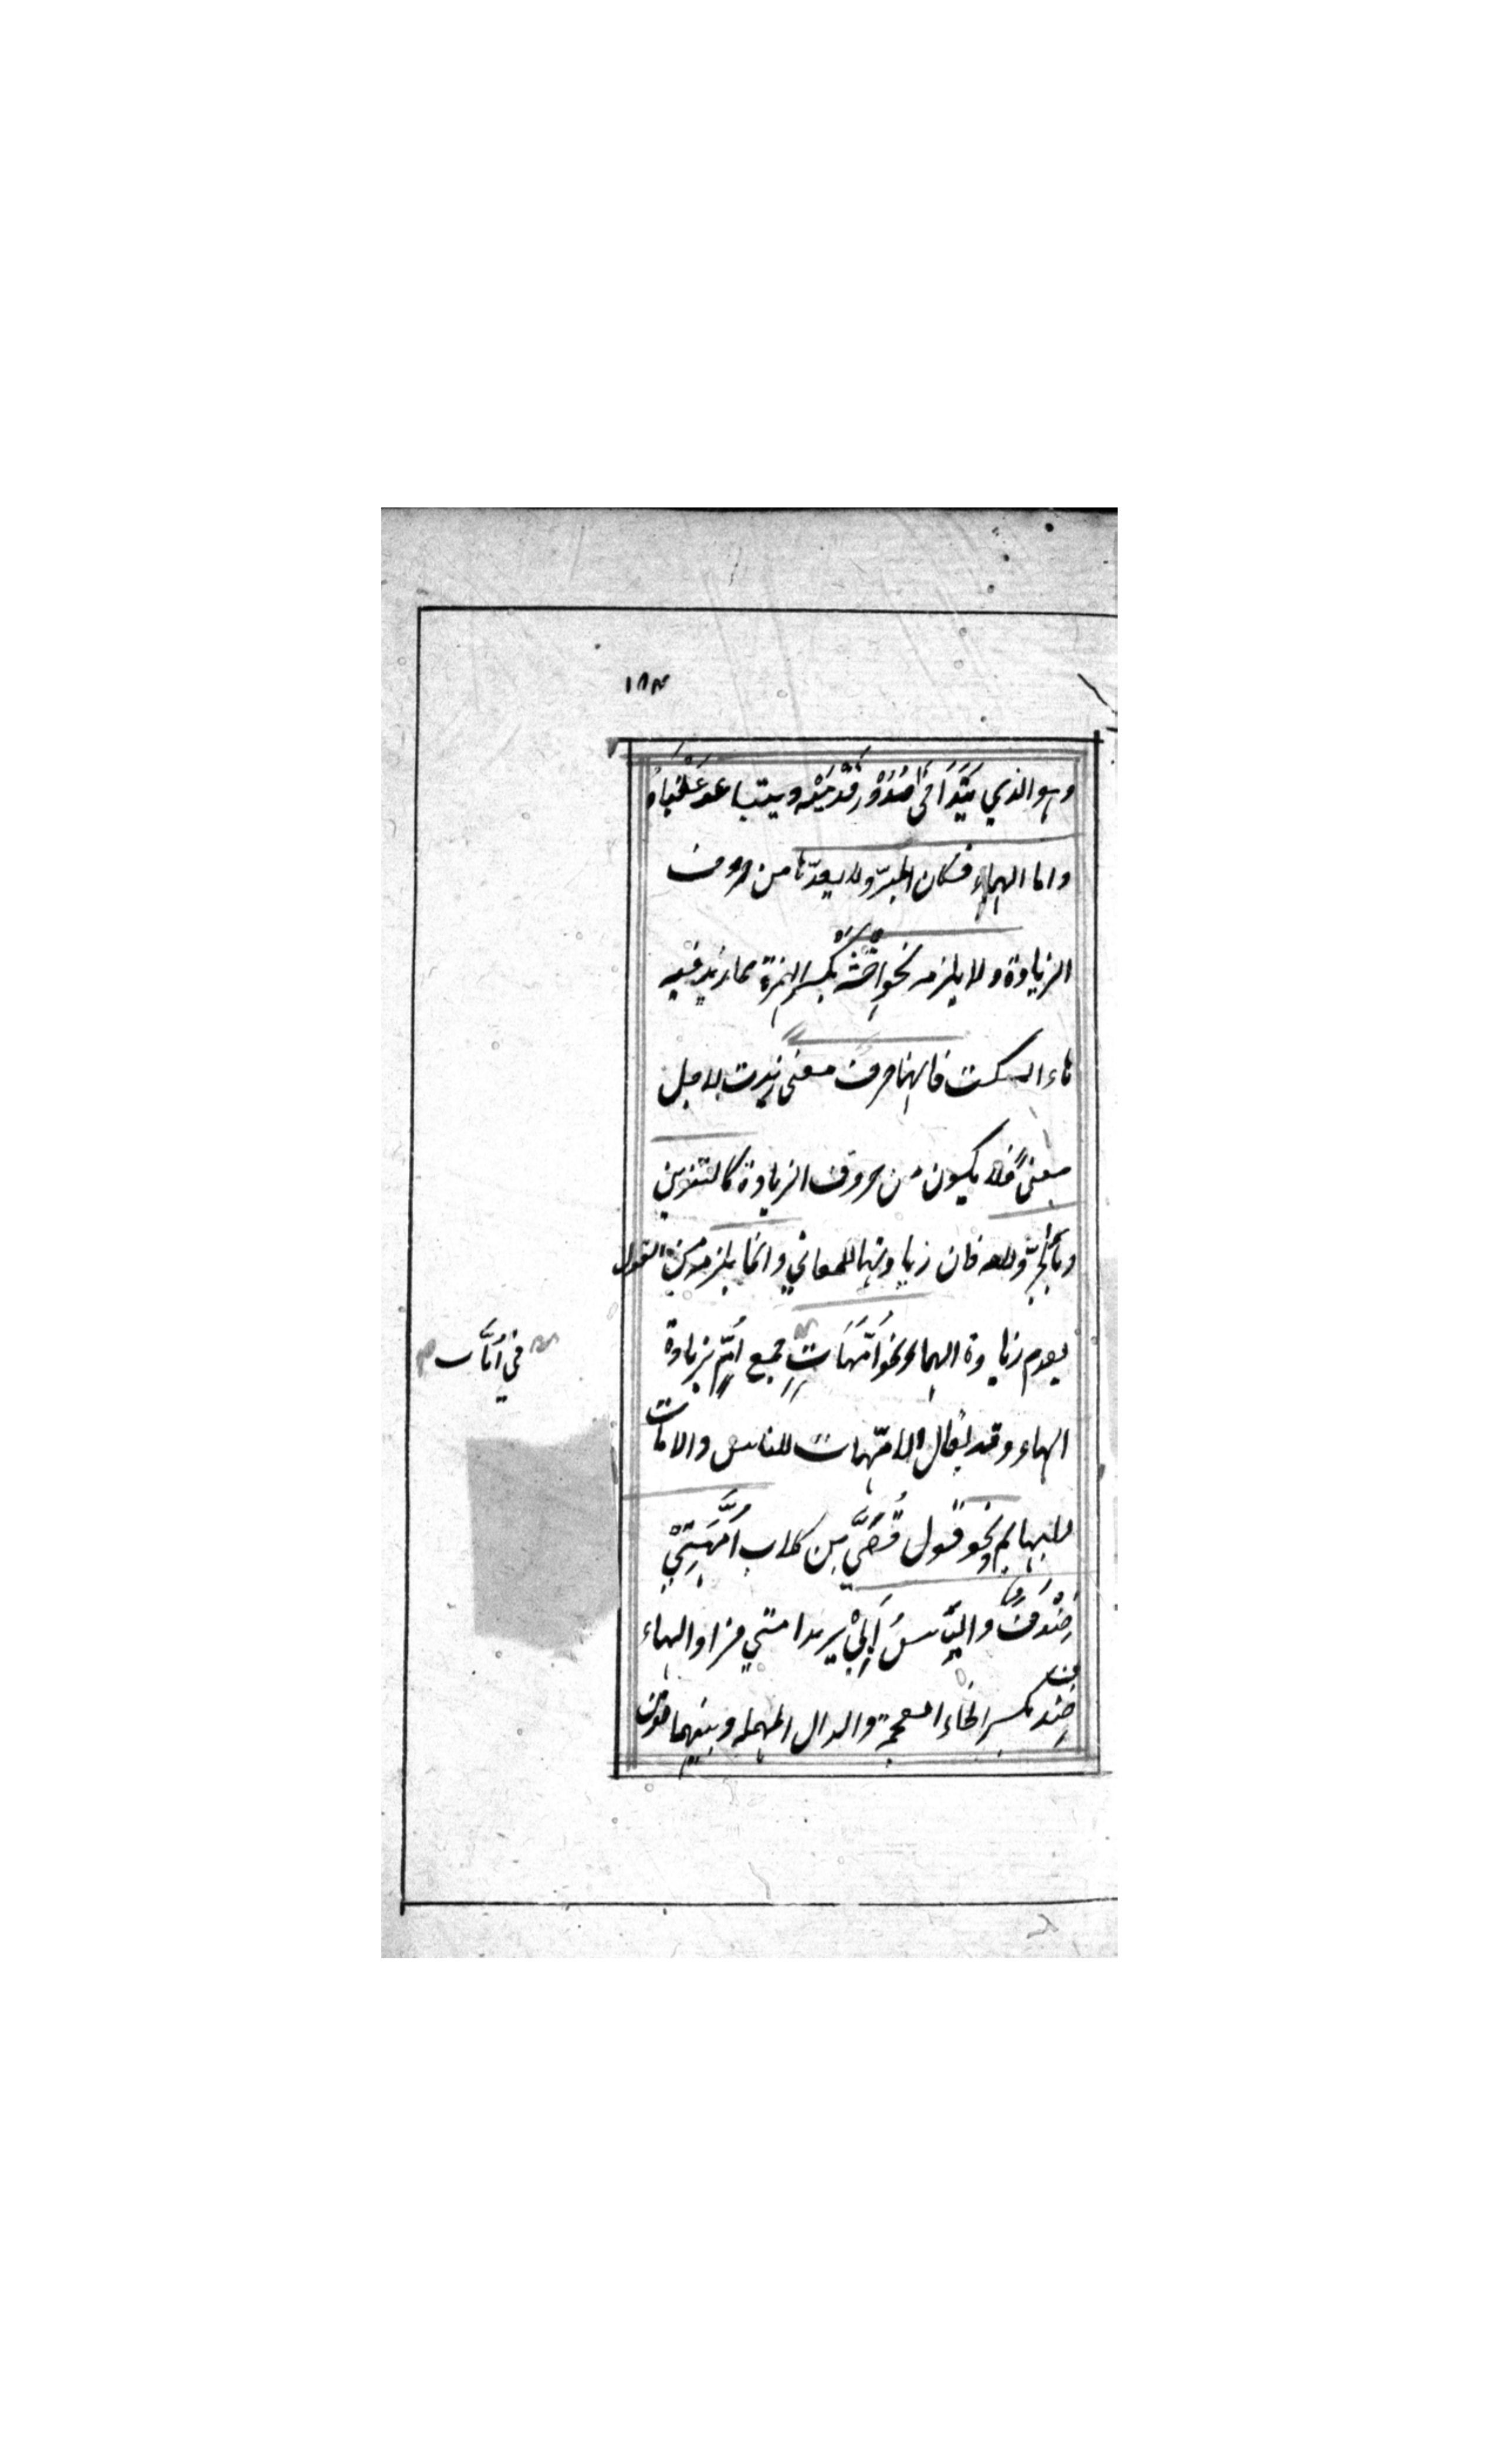 ١٨٣
وهو الذي يَتَدَانَى صُدُوْرُ قَدَمَيْهِ ويتباعد عَقِبَاهُ
واما الهاء فكان المبرّد لا يعدّها من حروف
الزيادة ولا يلزمه نحو اِخْشَهْ بكسر الهمزة مما زيد فيه
هاء السكت فانها حرف معنى زيدت لاجل
معنىً فلا يكون من حروف الزيادة كالتنوين
وباء الجرّ ولامه فان زيادتها للمعاني وانما يلزمه من القول
بعدم زيادة الهاء نحو اُمَّهَاتٍ جمع اُمٍّ بزيادة
في اُمَّات
الهاء وقد يقال الامّهات للناس والامات
للبهايم ونحو قول قُصَيّ بن كلاب اُمَّهَتِيْ
خِنْدِفُ والْيَاسُ اَبِيْ يريد امتي فزاد الهاء
خندف بكسر الخاء المعجمة والدال المهملة وبينهما نون